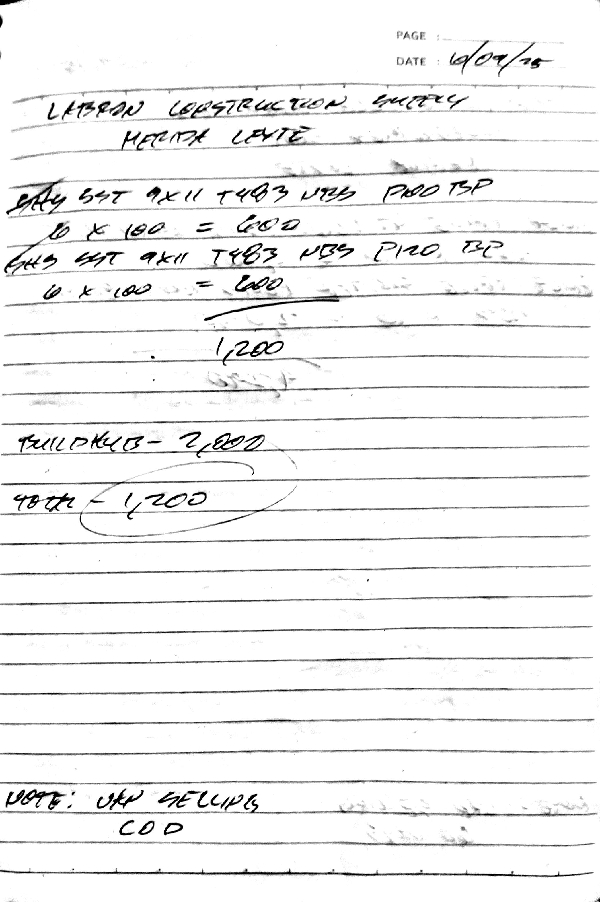 PAGE :
DATE : 6/09/25
LABRON CONSTRUCTION SUPPLY
MERIDA LEYTE
SHS SST 9X11 T483 NBS P100 BP
6 X 100 = 600
SHS SST 9X11 T483 NBS P120 BP
6 X 100 = 600
1,200
BUILDHUB - 2,000
TOTAL - 1,200
NOTE: VAN SELLING
COD